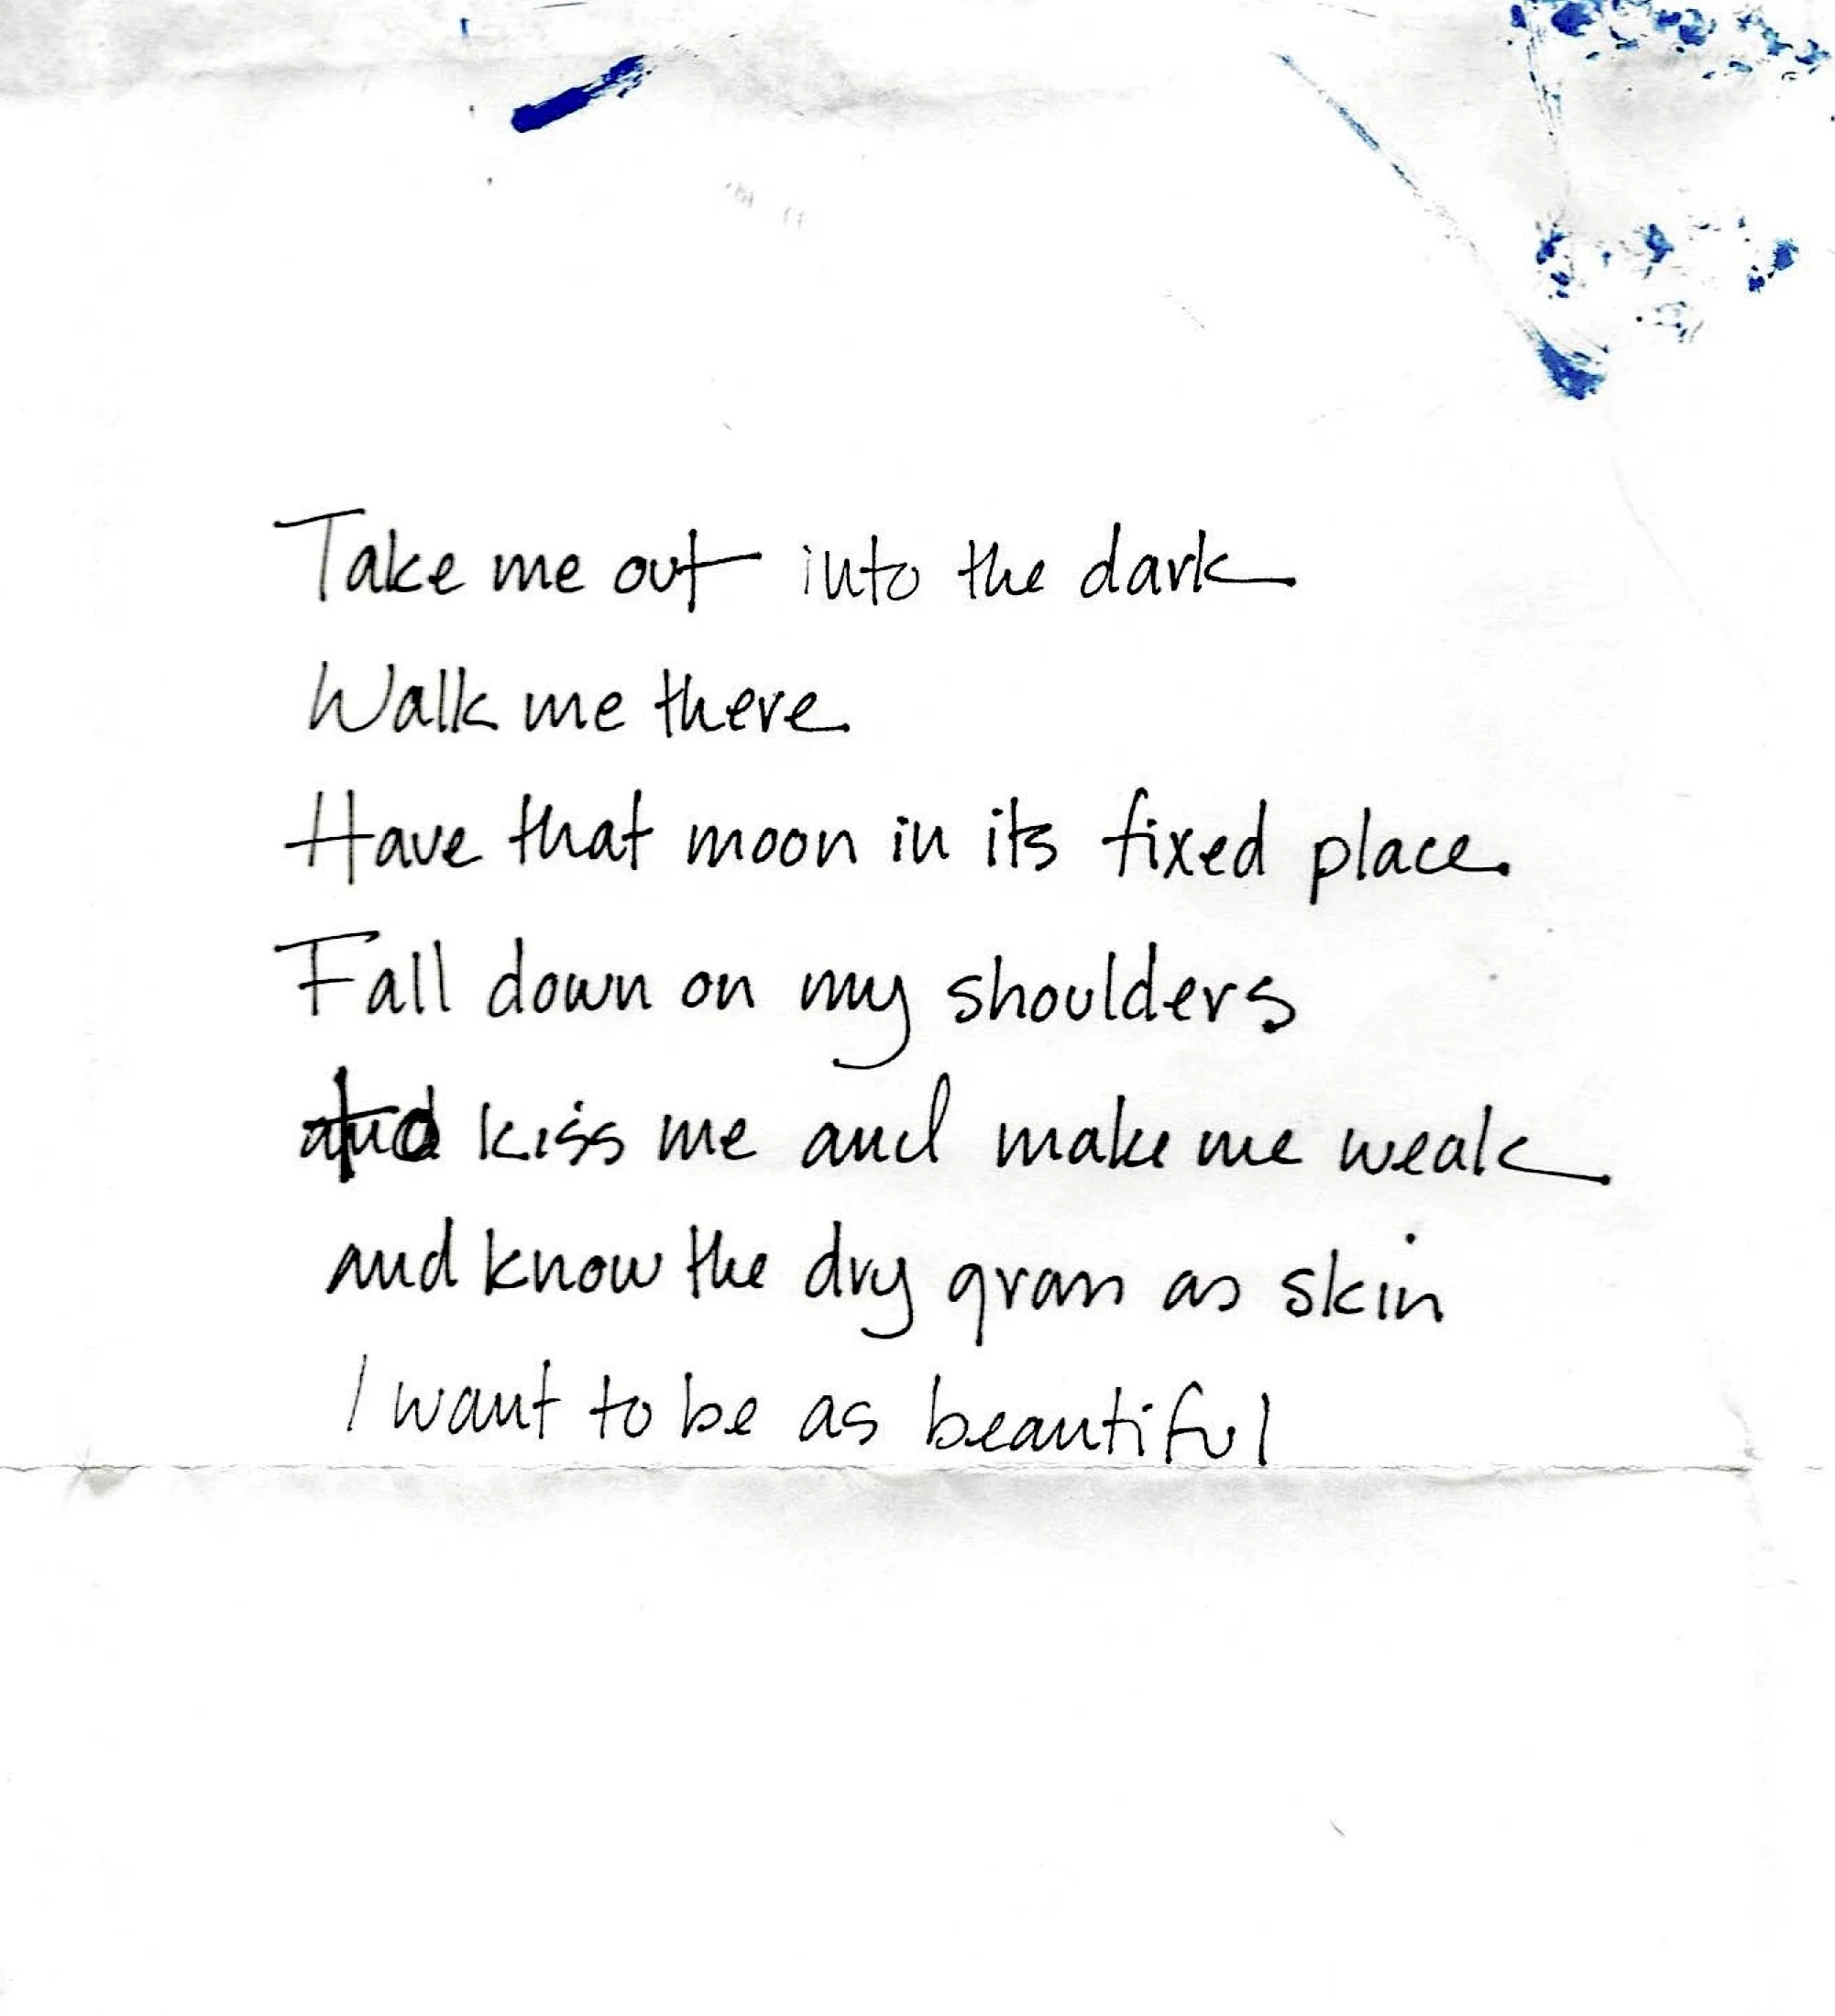 Take me out into the dark
Walk me there
Have that moon in its fixed place.
Fall down on my shoulders
and kiss me and make me weak
and know the dry grass as skin
I want to be as beautiful